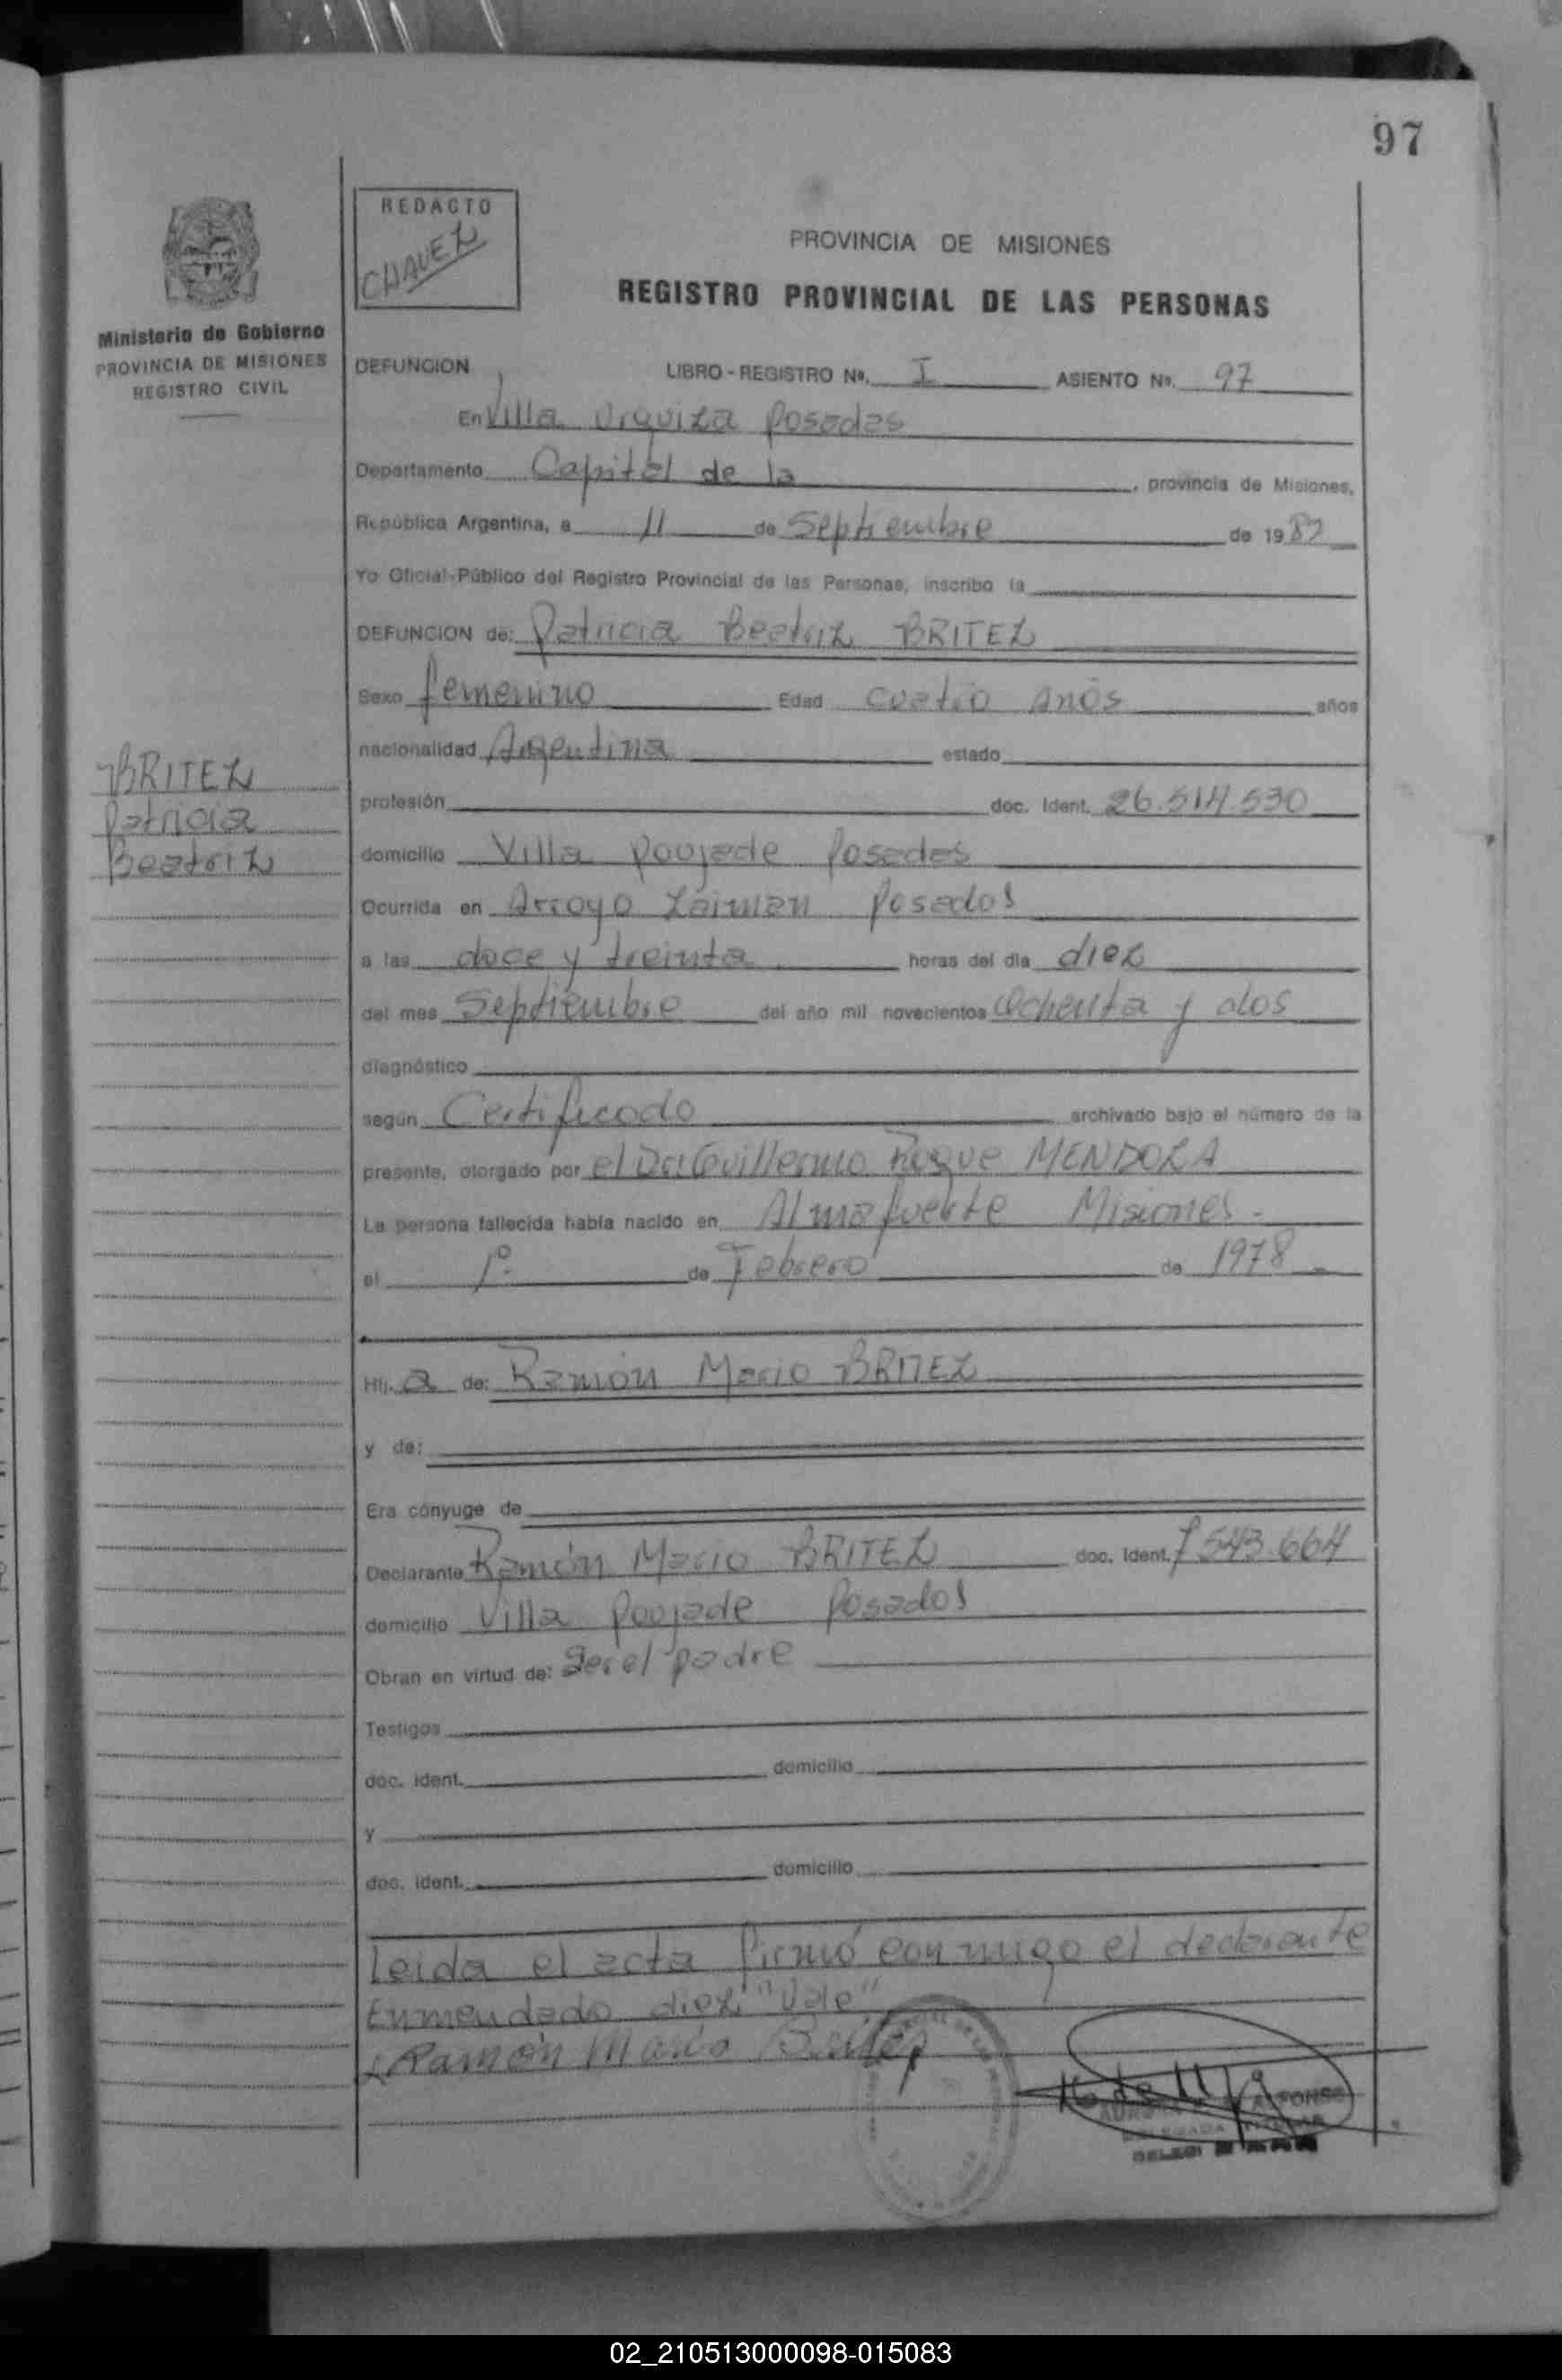 97
REDACTO
CHAVEZ
PROVINCIA DE MISIONES
REGISTRO PROVINCIAL DE LAS PERSONAS
Ministerio de Gobierno
PROVINCIA DE MISIONES
REGISTRO CIVIL
DEFUNCION LIBRO - REGISTRO Nº. I ASIENTO Nº. 97
En Villa Urquiza Posadas
Departamento Capital de la , provincia de Misiones,
República Argentina, a 11 de Septiembre de 1982
Yo Oficial Público del Registro Provincial de las Personas, inscribo la
DEFUNCION de: Patricia Beatriz BRITEZ
Sexo femenino Edad cuatro años años
nacionalidad Argentina estado
BRITEZ
Patricia
Beatriz
profesión doc. Ident. 26.514.530
domicilio Villa Poujade Posadas
Ocurrida en Arroyo Zaiman Posadas
a las doce y treinta horas del día diez
del mes Septiembre del año mil novecientos Ochenta y dos
diagnóstico
según Certificado archivado bajo el número de la
presente, otorgado por el Dr Guillermo Roque MENDOZA
La persona fallecida había nacido en Almafuerte Misiones -
el 1º de Febrero de 1978
Hij. a de: Ramón Mario BRITEZ
y de:
Era cónyuge de
Declarante Ramón Mario BRITEZ doc. Ident. 7543.664
domicilio Villa Poujade Posadas
Obran en virtud de: Ser el padre
Testigos
doc. ident. domicilio
y
doc. ident. domicilio
Leida el acta firmó conmigo el declarante
Enmendado diez "Vale"
Ramón Mario Britez
02_210513000098-015083